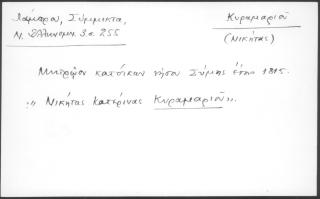 Λάμπρου, Σύμμικτα,
Ν. Ἑλληνομν. 3 σ. 255
Κυραμαριοῦ
(Νικήτας)
Μητρῷον κατοίκων νήσου Σύμης ἔτους 1815.
"Νικήτας Κατερίνας Κυραμαριοῦ".